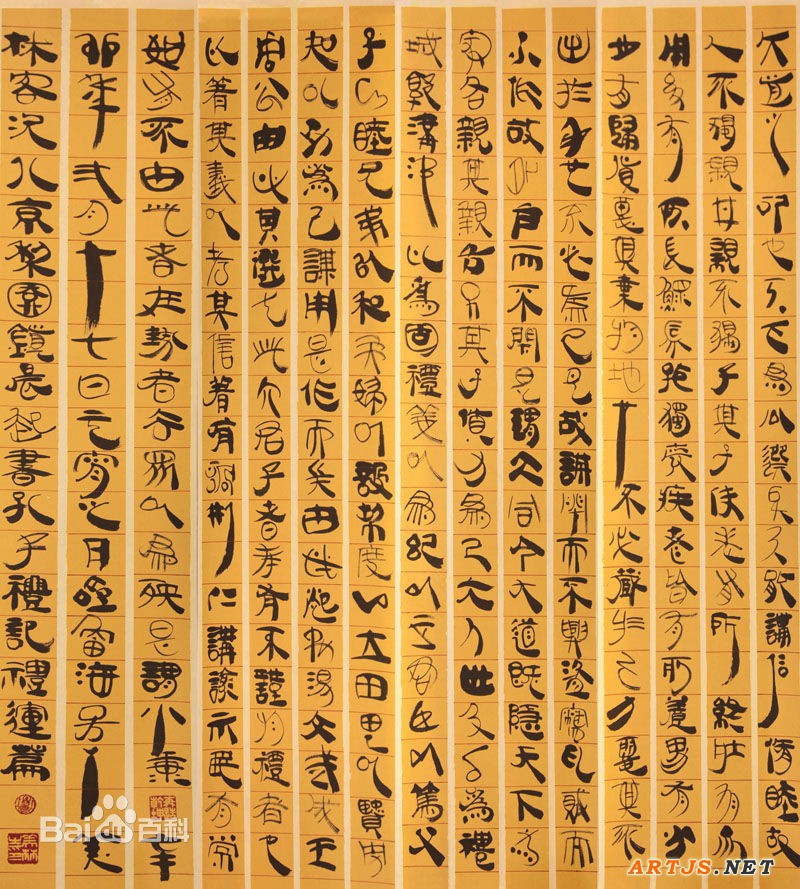 大道之行也天下為公選賢與能講信脩睦故
人不獨親其親不獨子其子使老有所終壯有所
用幼有所長鰥寡孤獨廢疾者皆有所養男有分
女有歸貨惡其棄於地不必藏於己力惡其不
出於身也不必為己是故謀閉而不興盜竊亂賊而
不作故外戶而不閉是謂大同今大道既隱天下為
家各親其親各子其子貨力為己大人世及以為禮
城郭溝池以為固禮義以為紀以正君臣以篤父
子以睦兄弟以和夫婦以設制度以立田里以賢勇
知以功為己謀用是作而兵由此起禹湯文武成王
周公由此其選也此六君子者未有不謹於禮者也
以著其義以考其信著有過刑仁講讓示民有常
如有不由此者在勢者去眾以為殃是謂小康辛
卯年弍月十七日元宵之月海
林客京梨園鎮晨起書孔子禮記禮運篇
Baidu百科
ARTJS.NET